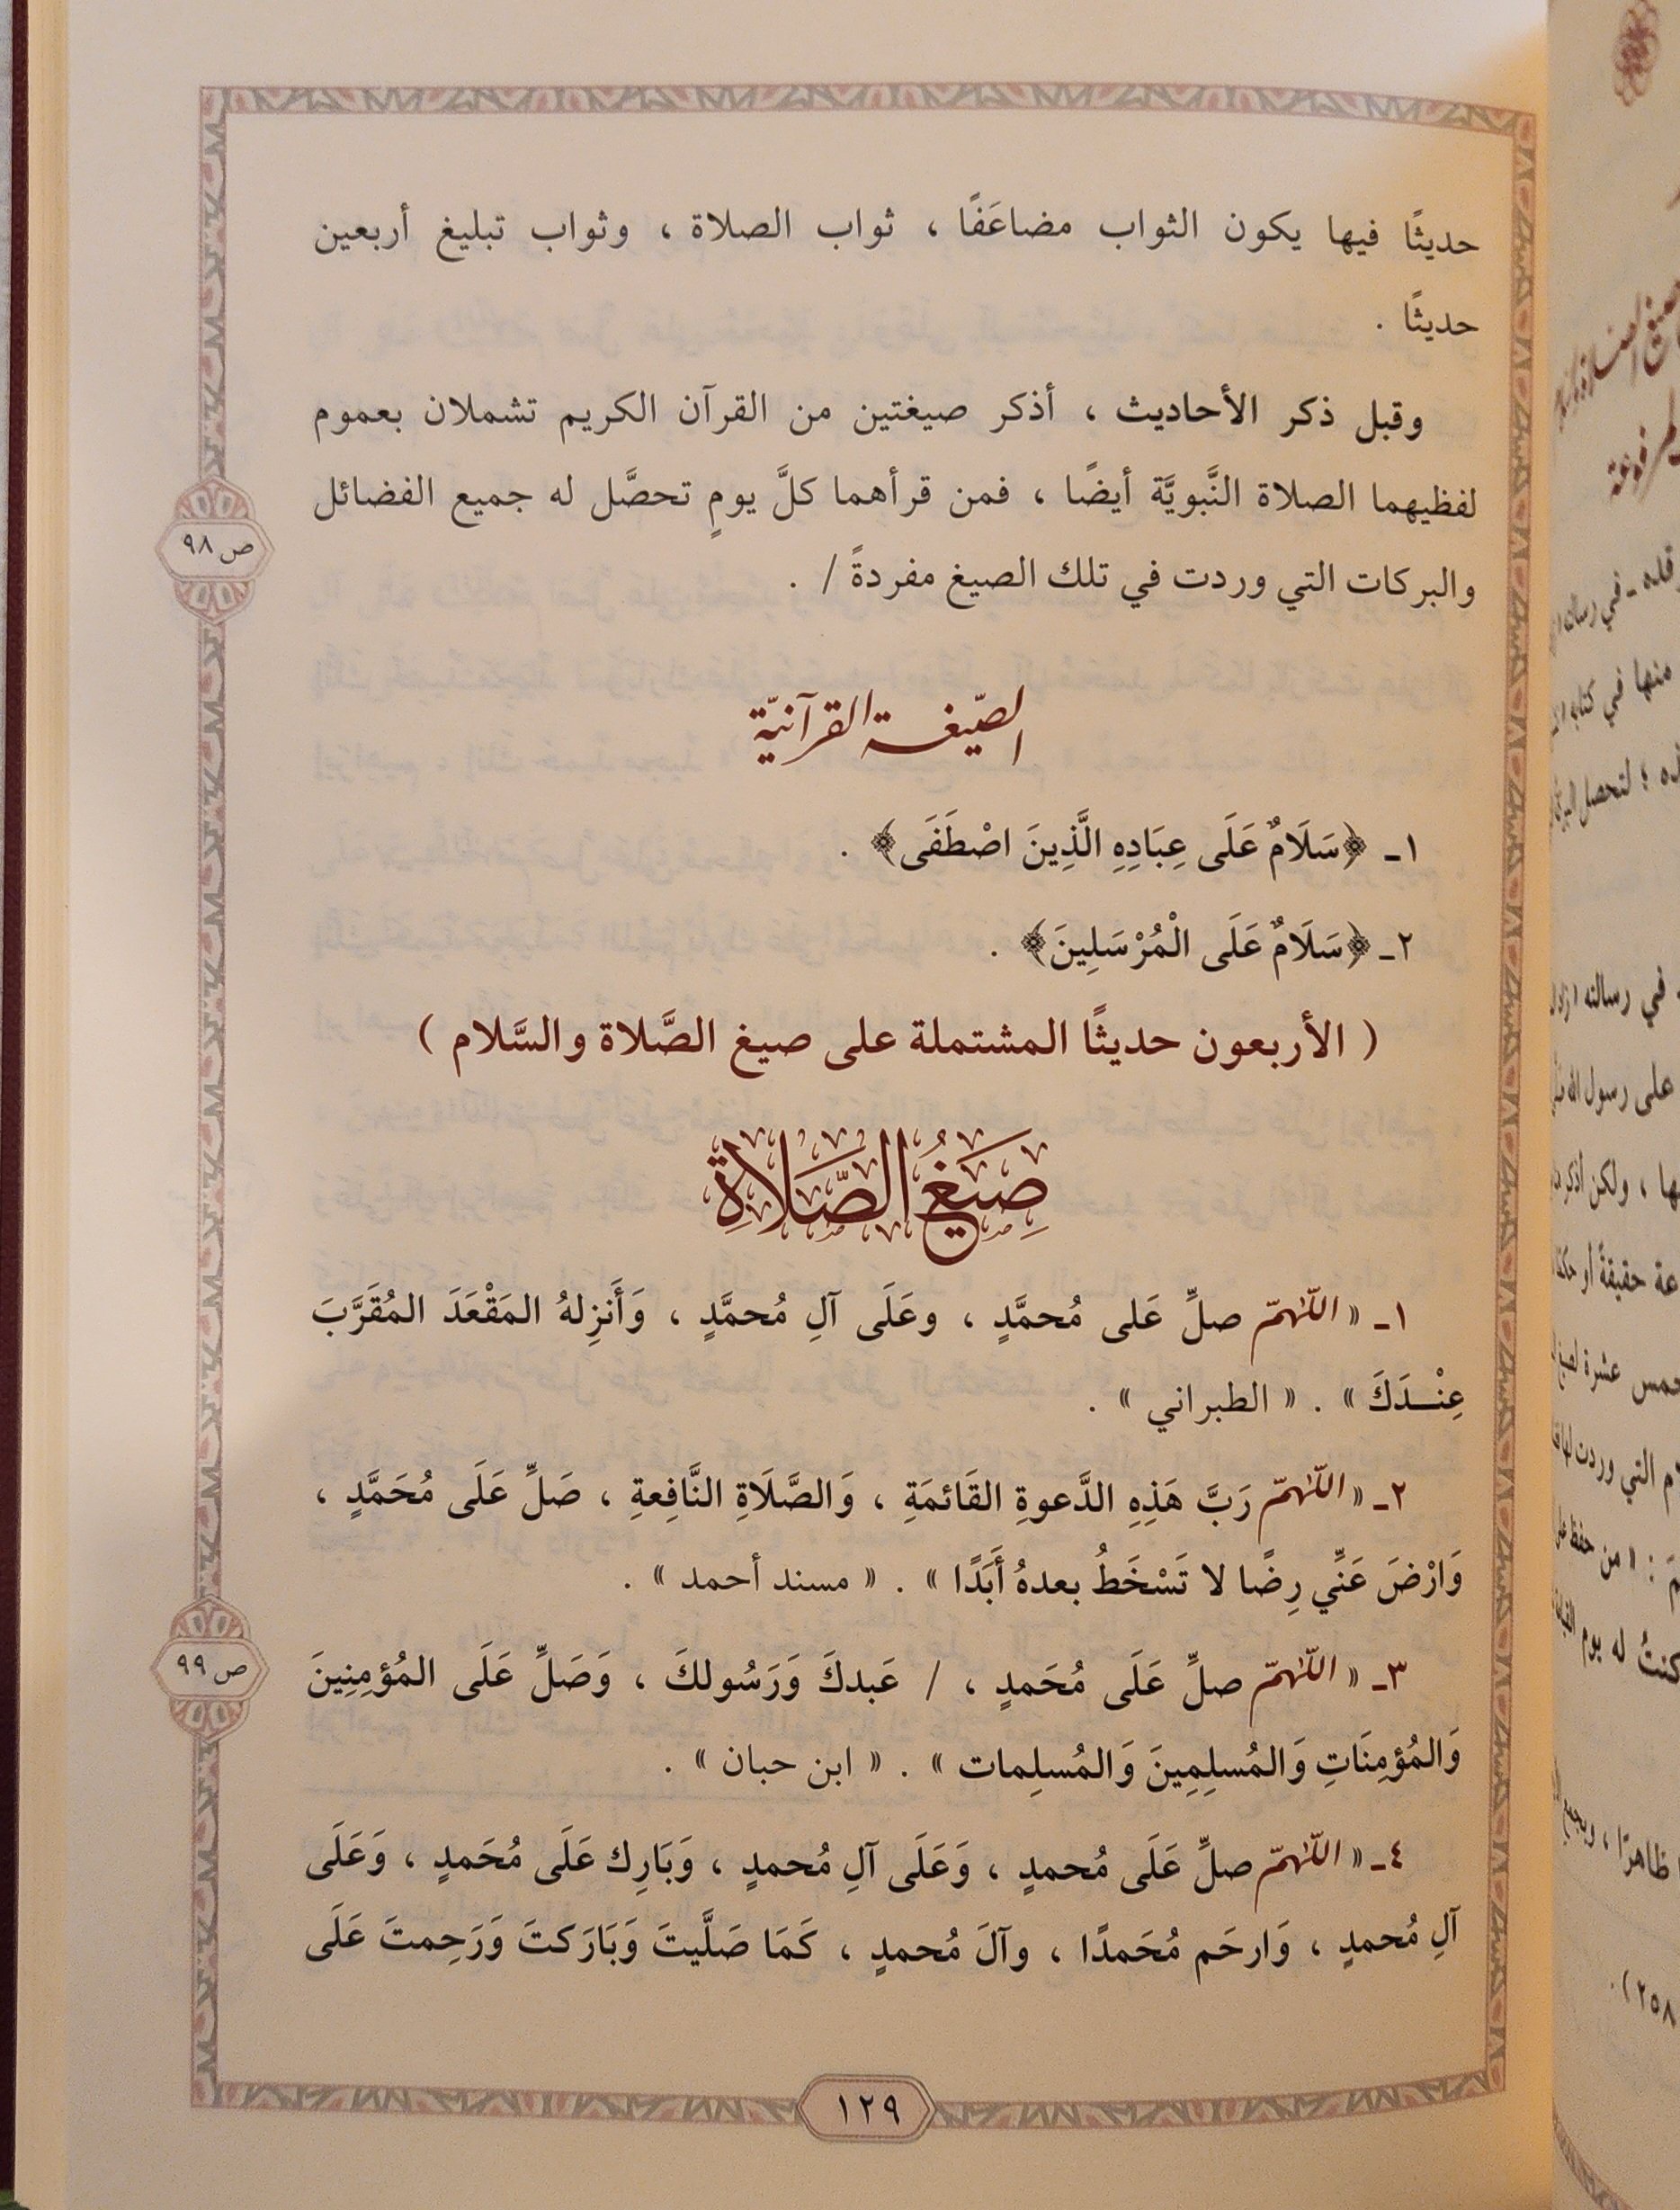 حديثًا فيها يكون الثواب مضاعَفًا ، ثواب الصلاة ، وثواب تبليغ أربعين
حديثًا .
وقبل ذكر الأحاديث ، أذكر صيغتين من القرآن الكريم تشملان بعموم
لفظيهما الصلاة النَّبويَّة أيضًا ، فمن قرأهما كلَّ يومٍ تحصَّل له جميع الفضائل
ص ٩٨
والبركات التي وردت في تلك الصيغ مفردةً / .
الصّيغة القرآنيّة
١ـ ﴿سَلَامٌ عَلَى عِبَادِهِ الَّذِينَ اصْطَفَى﴾ .
٢ـ ﴿سَلَامٌ عَلَى الْمُرْسَلِينَ﴾ .
( الأربعون حديثًا المشتملة على صيغ الصَّلاة والسَّلام )
صِيَغُ الصَّلَاةِ
١ـ « اللّٰهمّ صلِّ عَلى مُحمَّدٍ ، وعَلَى آلِ مُحمَّدٍ ، وَأَنزِلهُ المَقْعَدَ المُقَرَّبَ
عِنْـدَكَ » . « الطبراني » .
٢ـ « اللّٰهمّ رَبَّ هَذِهِ الدَّعوةِ القَائمَةِ ، وَالصَّلَاةِ النَّافِعةِ ، صَلِّ عَلَى مُحَمَّدٍ ،
وَارْضَ عَنِّي رِضًا لا تَسْخَطُ بعدهُ أَبَدًا » . « مسند أحمد » .
ص ٩٩
٣ـ « اللّٰهمّ صلِّ عَلَى مُحَمدٍ ، / عَبدكَ وَرَسُولكَ ، وَصَلِّ عَلَى المُؤمِنِينَ
وَالمُؤمِنَاتِ وَالمُسلِمِينَ وَالمُسلِمات » . « ابن حبان » .
٤ـ « اللّٰهمّ صلِّ عَلَى مُحمدٍ ، وَعَلَى آلِ مُحمدٍ ، وَبَارِك عَلَى مُحَمدٍ ، وَعَلَى
آلِ مُحمدٍ ، وَارحَم مُحَمدًا ، وآلَ مُحمدٍ ، كَمَا صَلَّيتَ وَبَارَكتَ وَرَحِمتَ عَلَى
١٢٩